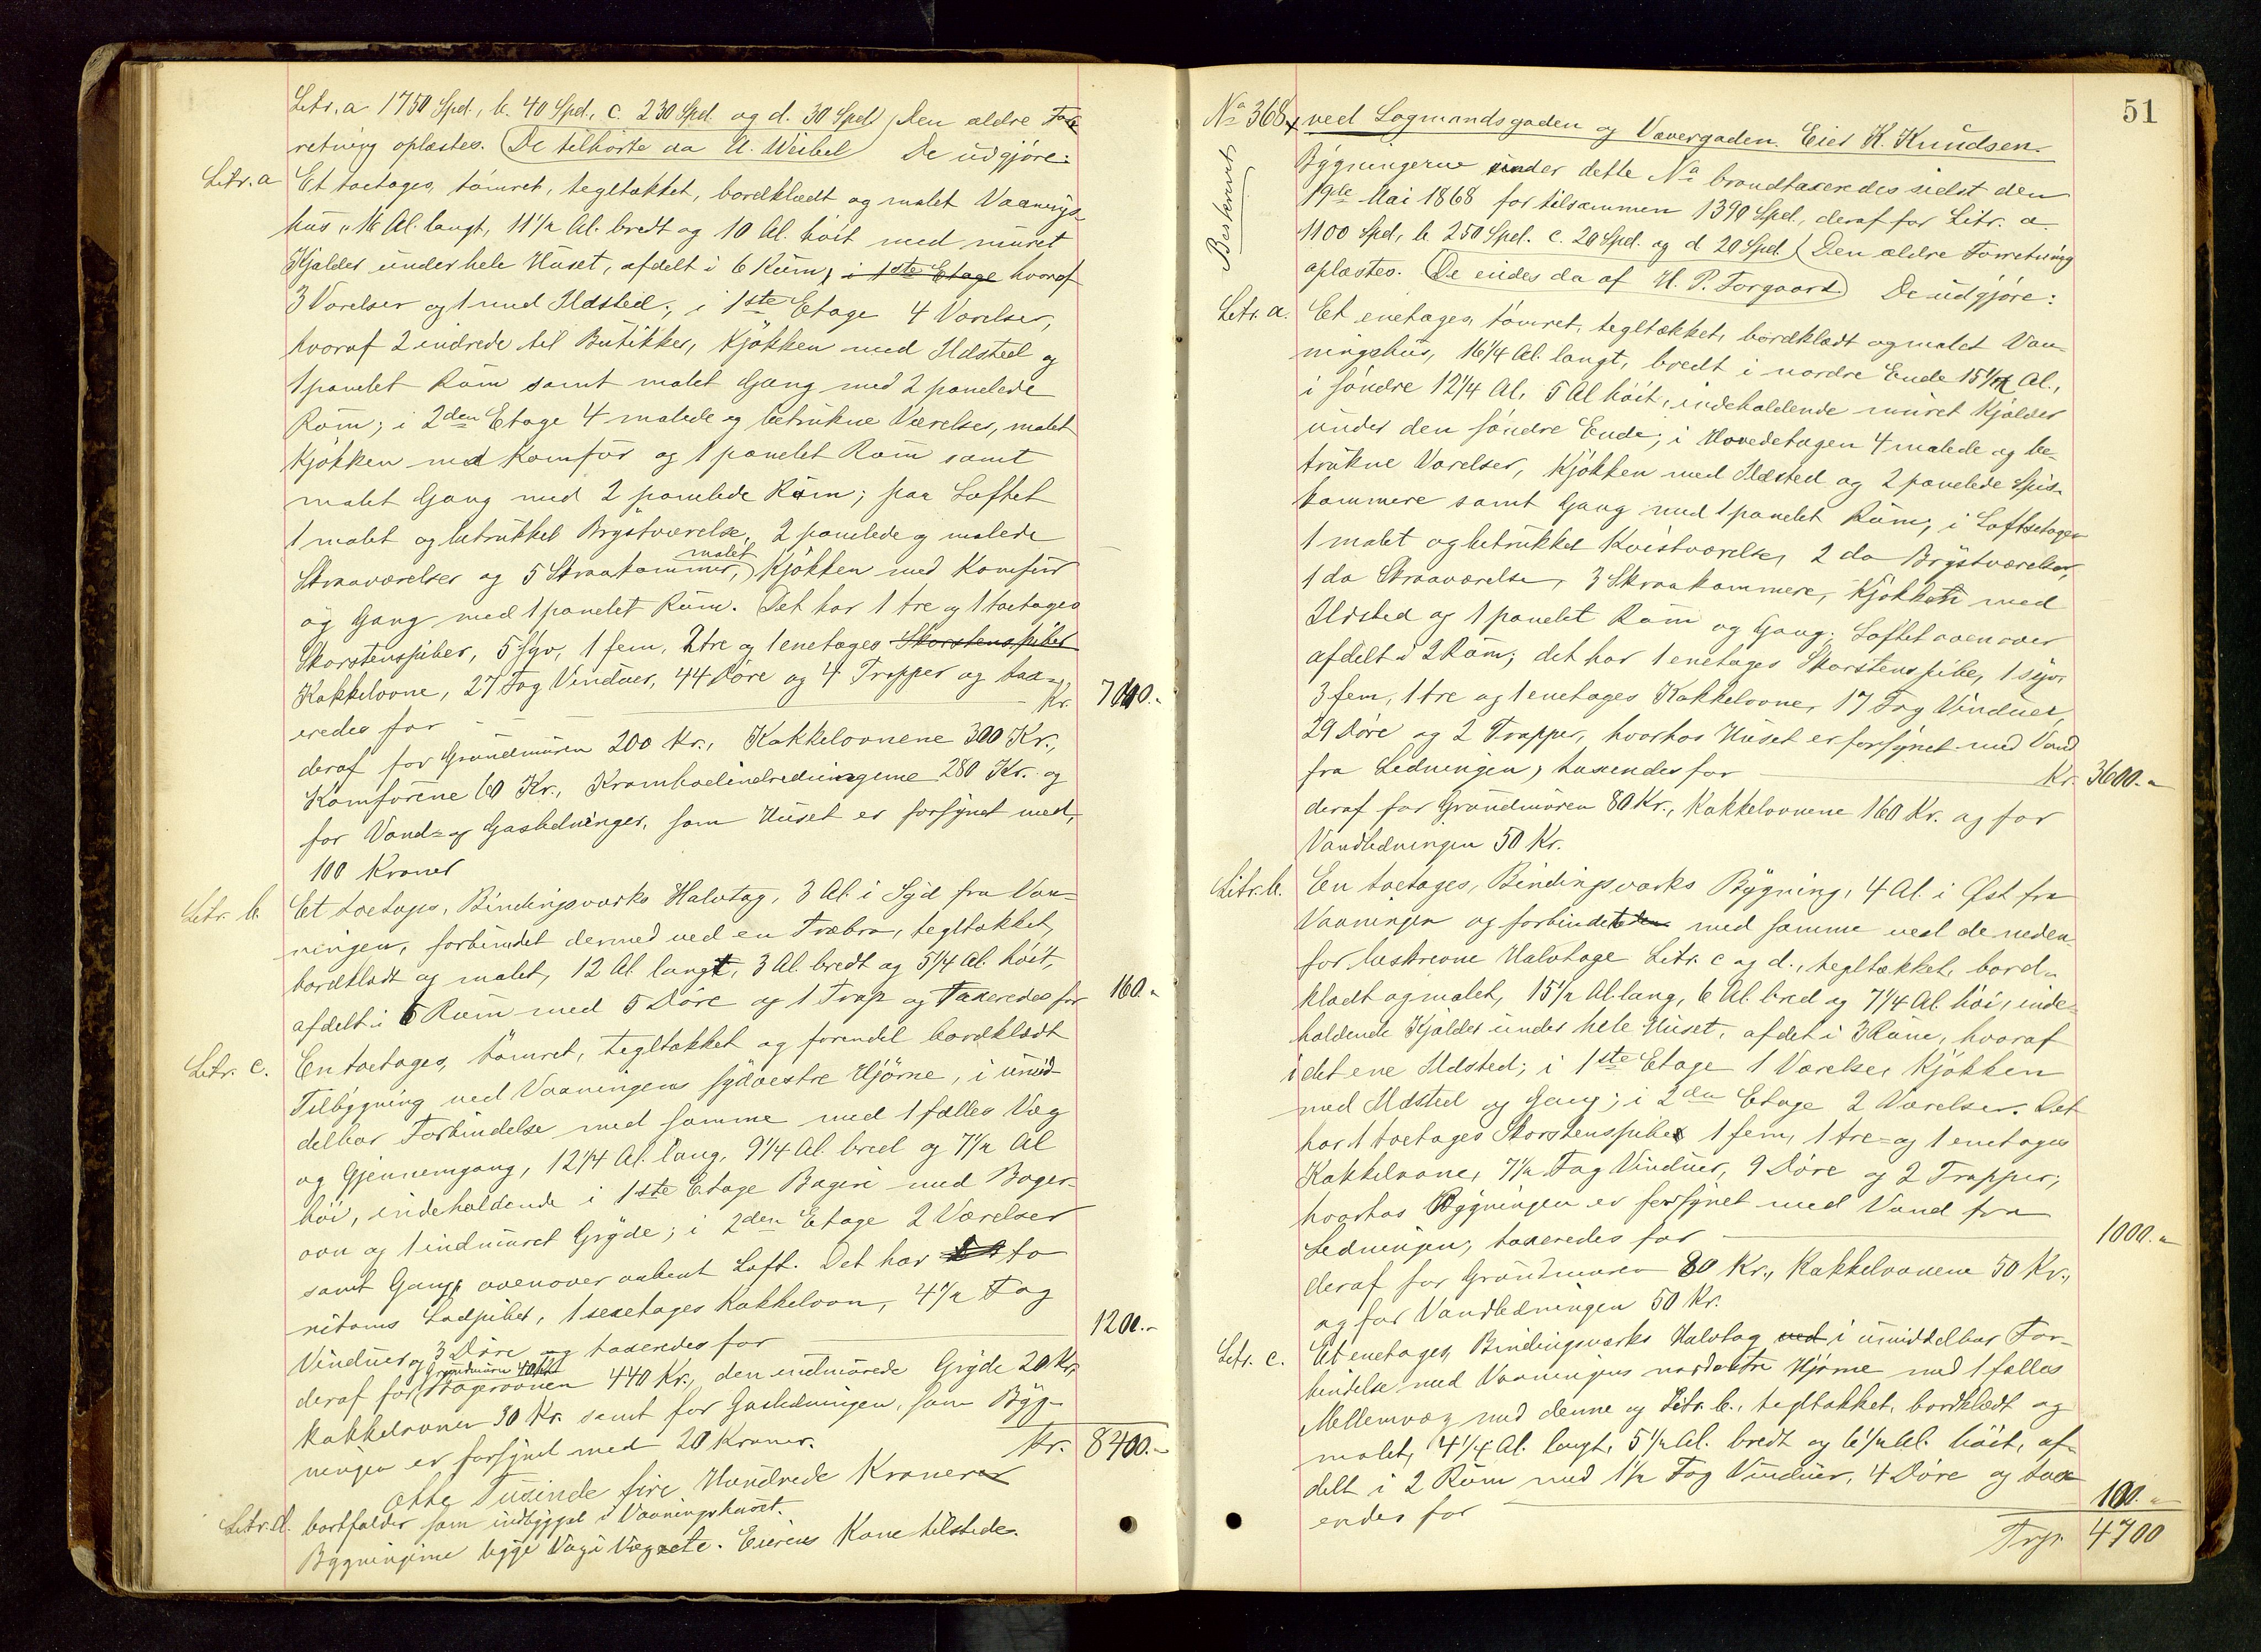 Litr. a 1750 Spd., b. 40 Spd., c. 230 Spd. og d. 30 Spd. Den ældre For-
retning oplæstes. (De tilhørte da A. Weibel) De udgjøre:
Litr. a Et toetages, tømret, tegltækket, bordklædt og malet Vaanings-
hus, 16 Al. langt, 11 1/2 Al. bredt og 10 Al. höit med muret
Kjelder under hele Huset, afdelt i 6 Rum, i 1ste Etage hvoraf
3 Værelser og 1 med Ildsted; i 1ste Etage 4 Værelser,
hvoraf 2 indrede til Butikker, Kjøkken med Ildsted og
1 panelet Rum samt malet Gang med 2 panelede
Rum; i 2den Etage 4 malede og betrukne Værelser, malet
Kjøkken med Komfur og 1 panelet Rum samt
malet Gang med 2 panelede Rum; paa Loftet
1 malet og betrukket Brystværelse, 2 panelede og malede
Skraaværelser og 5 Skraakammer, malet Kjøkken med Komfur
og Gang med 1 panelet Rum. Det har 1 tre og 1 toetages
Skorstenspiber, 5 syv, 1 fem, 2 tre og 1 enetages Skorstenspiber
Kakkelovne, 27 Fag Vinduer, 44 Døre og 4 Trapper og tax-
eredes for Kr. 7040.-
deraf for Grundmuren 200 Kr., Kakkelovnene 300 Kr.,
Komfurene 60 Kr., Kramboelindredningerne 280 Kr. og
for Vand- og Gasledninger, som Huset er forsynet med,
100 Kroner
Litr. b. Et toetages, Bindingsværks Halvtag, 3 Al. i Syd fra Vaa-
ningen, forbundet dermed ved en Træbro, tegltækket,
bordklædt og malet, 12 Al. langt, 3 Al. bredt og 5 1/4 Al. höit,
afdelt i 5 Rum med 5 Døre og 1 Trap og taxeredes for 160.-
Litr. c. En toetages, tømret, tegltækket og forendel bordklædt
Tilbygning ved Vaaningens sydvestre Hjørne, i umid-
delbar Forbindelse med samme med 1 fælles Væg
og Gjennemgang, 12 1/4 Al. lang, 9 1/4 Al. bred og 7 1/2 Al
höi, indeholdende i 1ste Etage Bageri med Bager-
ovn og 1 indmuret Gryde; i 2den Etage 2 Værelser
samt Gang, ovenover aabent Loft. Det har to
ritoms Lodpiber, 1 sexetages Kakkelovn, 4 1/2 Fag
Vinduer og 3 Døre og taxeredes for 1200.-
deraf for Grundmuren 40 Kr. Bagerovnen 440 Kr., den indmurede Gryde 20 Kr,
Kakkelovnen 30 Kr. samt for Gasledningen, som Byg-
ningen er forsynet med 20 Kroner. Kr. 8400.-
Otte Tusinde fire Hundrede Kroner
Litr. d. bortfalder som indbygget i Vaaningshuset.
Bygningerne ligge Væg i Væg. Eierens Kone tilstede.
51
No 368 ved Lagmandsgaden og Vævergaden. Eier K. Knudsen.
Beskrevet
Bygningerne under dette No brandtaxeredes sidst den
19de Mai 1868 for tilsammen 1390 Spd., deraf for Litr. a
1100 Spd., b. 250 Spd. c. 20 Spd. og d 20 Spd. Den ældre Forretning
oplæstes. (De eiedes da af H. P. Torgaard.) De udgjøre:
Litr. a. Et enetages, tömret, tegltækket, bordklædt og malet Vaa-
ningshus, 16 1/4 Al. langt, bredt i nordre Ende 15 1/2 Al.,
i søndre 12 1/4 Al., 5 Al höit, indeholdende muret Kjælder
under den søndre Ende; i Hovedetagen 4 malede og be-
trukne Værelser, Kjøkken med Ildsted og 2 panelede Spis-
kammere samt Gang med 1 panelet Rum; i Loftsetagen
1 malet og betrukket Kvistværelse, 2 do Brystværelser,
1 do Skraaværelse, 3 Skraakammere, Kjøkken med
Ildsted og 1 panelet Rum og Gang; Loftet ovenover
afdelt i 2 Rum; det har 1 enetages Skorstenspibe, 1 syv,
3 fem, 1 tre og 1 enetages Kakkelovne, 17 Fag Vinduer,
29 Døre og 2 Trapper, hvorhos Huset er forsynet med Vand
fra Ledningen, taxeredes for Kr. 3600.-
deraf for Grundmuren 80 Kr., Kakkelovnene 160 Kr. og for
Vandledningen 50 Kr.
Litr. b. En toetages, Bindingsværks Bygning, 4 Al. i Øst fra
Vaaningen og forbindet med samme ved de neden-
for beskrevne Halvtage Litr. c og d., tegltækket, bord-
klædt og malet, 15 1/2 Al. lang, 6 Al. bred og 7 1/4 Al. höi, inde-
holdende Kjælder under hele Huset, afdelt i 3 Rum, hvoraf
i det ene Ildsted; i 1ste Etage 1 Værelse, Kjøkken
med Ildsted og Gang; i 2den Etage 2 Værelser. Det
har 1 toetages Skorstenspibe, 1 fem, 1 tre- og 1 enetages
Kakkelovne, 7 1/2 Fag Vinduer, 9 Døre og 2 Trapper;
hvorhos Bygningen er forsynet med Vand fra
Ledningen, taxeredes for 1000.-
deraf for Grundmuren 80 Kr., Kakkelovnene 50 Kr.,
og for Vandledningen 50 Kr.
Litr. c. Et enetages, Bindingsværks Halvtag ved i umiddelbar For-
bindelse med Vaaningens nordøstre Hjørne med 1 fælles
Mellemvæg med denne og Litr. b., tegltækket, bordklædt og
malet, 4 1/4 Al. langt, 5 1/2 Al. bredt og 6 1/2 Al. höit, af-
delt i 2 Rum med 1 1/2 Fag Vinduer, 4 Døre og tax-
eredes for 100.-
Trsp. 4700